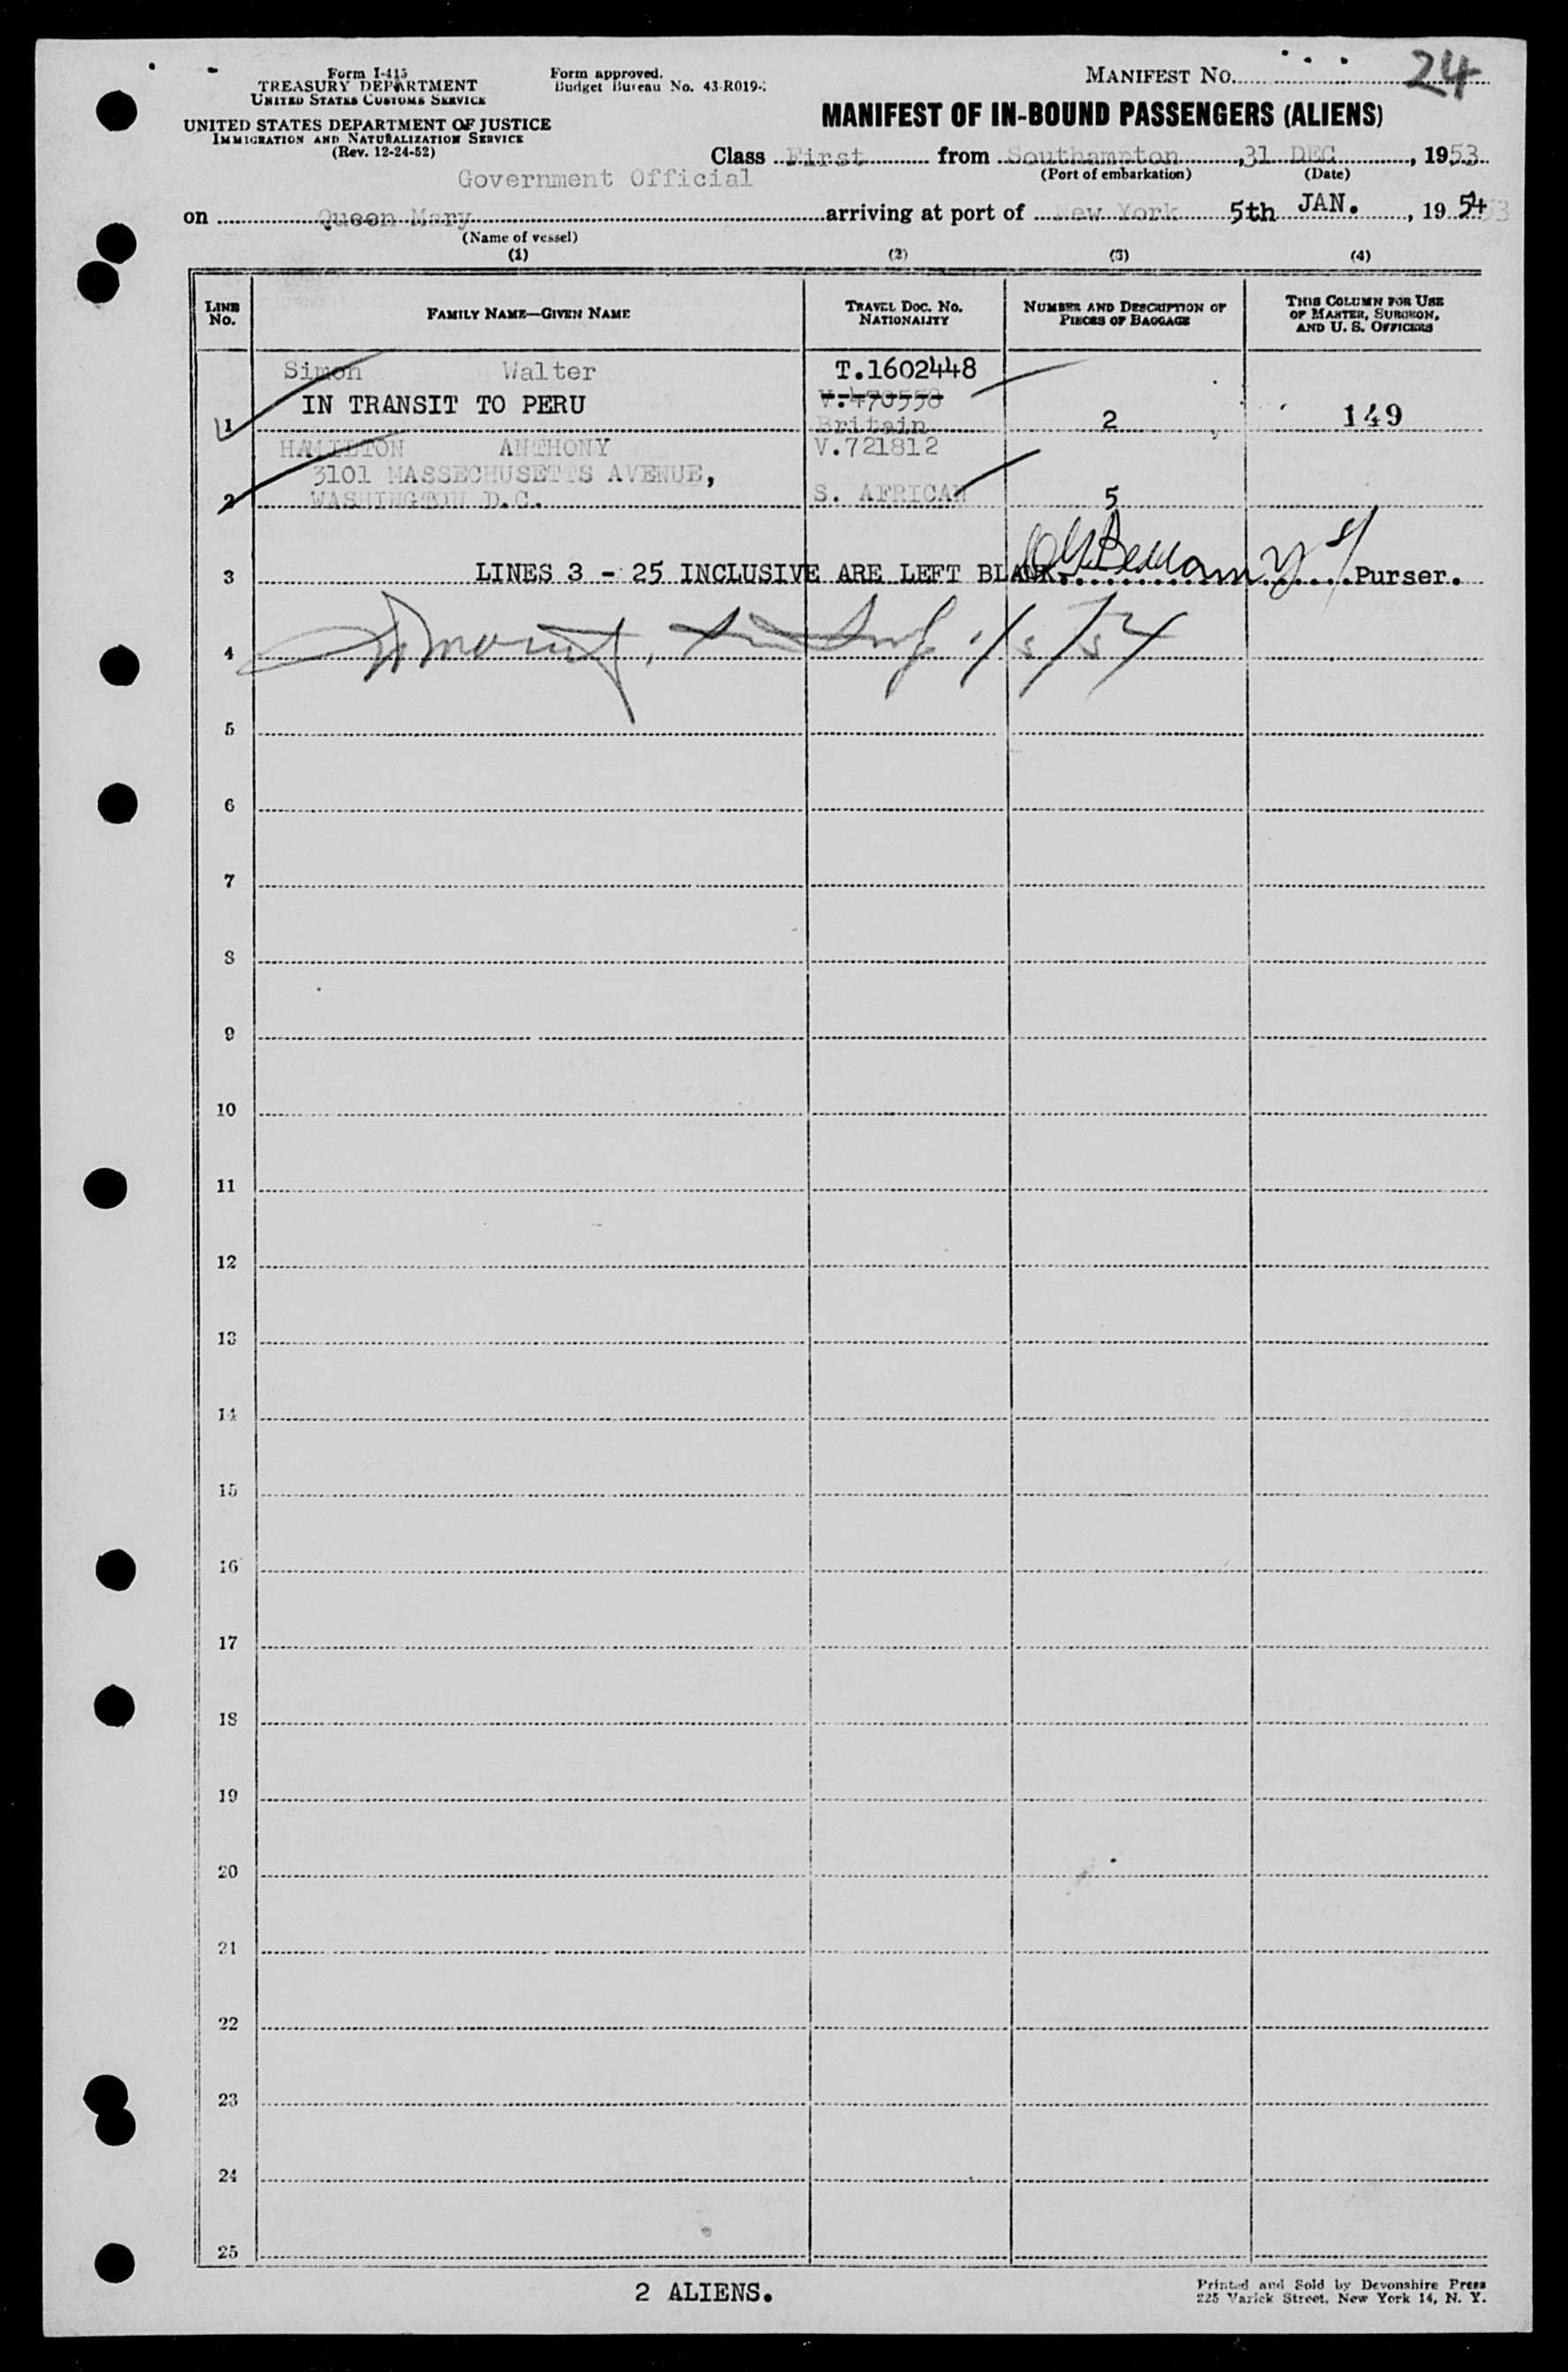 Form I-415
TREASURY DEPARTMENT
UNITED STATES CUSTOMS SERVICE
UNITED STATES DEPARTMENT OF JUSTICE
IMMIGRATION AND NATURALIZATION SERVICE
(Rev. 12-24-52)
Form approved.
Budget Bureau No. 43-R019-
MANIFEST NO. 24
MANIFEST OF IN-BOUND PASSENGERS (ALIENS)
Class First from Southampton, 31 DEC, 1953
(Port of embarkation) (Date)
Government Official
on Queen Mary arriving at port of New York 5th JAN., 19 54 53
(Name of vessel)
(1) (2) (3) (4)
LINE No. FAMILY NAME—GIVEN NAME TRAVEL DOC. NO. NATIONALITY NUMBER AND DESCRIPTION OF PIECES OF BAGGAGE THIS COLUMN FOR USE OF MASTER, SURGEON, AND U. S. OFFICERS
Simon Walter T.1602448
IN TRANSIT TO PERU V.470558
1 Britain 2 149
HAMILTON ANTHONY V.721812
3101 MASSECHUSETTS AVENUE,
2 WASHINGTON D.C. S. AFRICAN 5
3 LINES 3 - 25 INCLUSIVE ARE LEFT BLANK. Bellamy Purser.
4 1/5/54
5
6
7
8
9
10
11
12
13
14
15
16
17
18
19
20
21
22
23
24
25
2 ALIENS.
Printed and Sold by Devonshire Press
225 Varick Street, New York 14, N. Y.